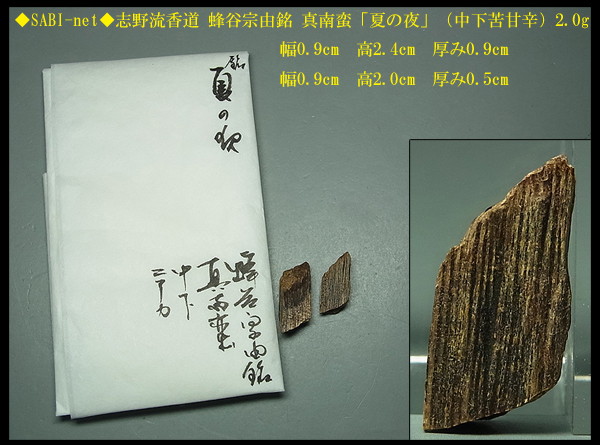 ◆SABI-net◆志野流香道 蜂谷宗由銘 真南蛮「夏の夜」（中下苦甘辛）2.0g
幅0.9cm 高2.4cm 厚み0.9cm
幅0.9cm 高2.0cm 厚み0.5cm
銘
夏の夜
蜂谷宗由銘
真南蛮
中下
ニアカ